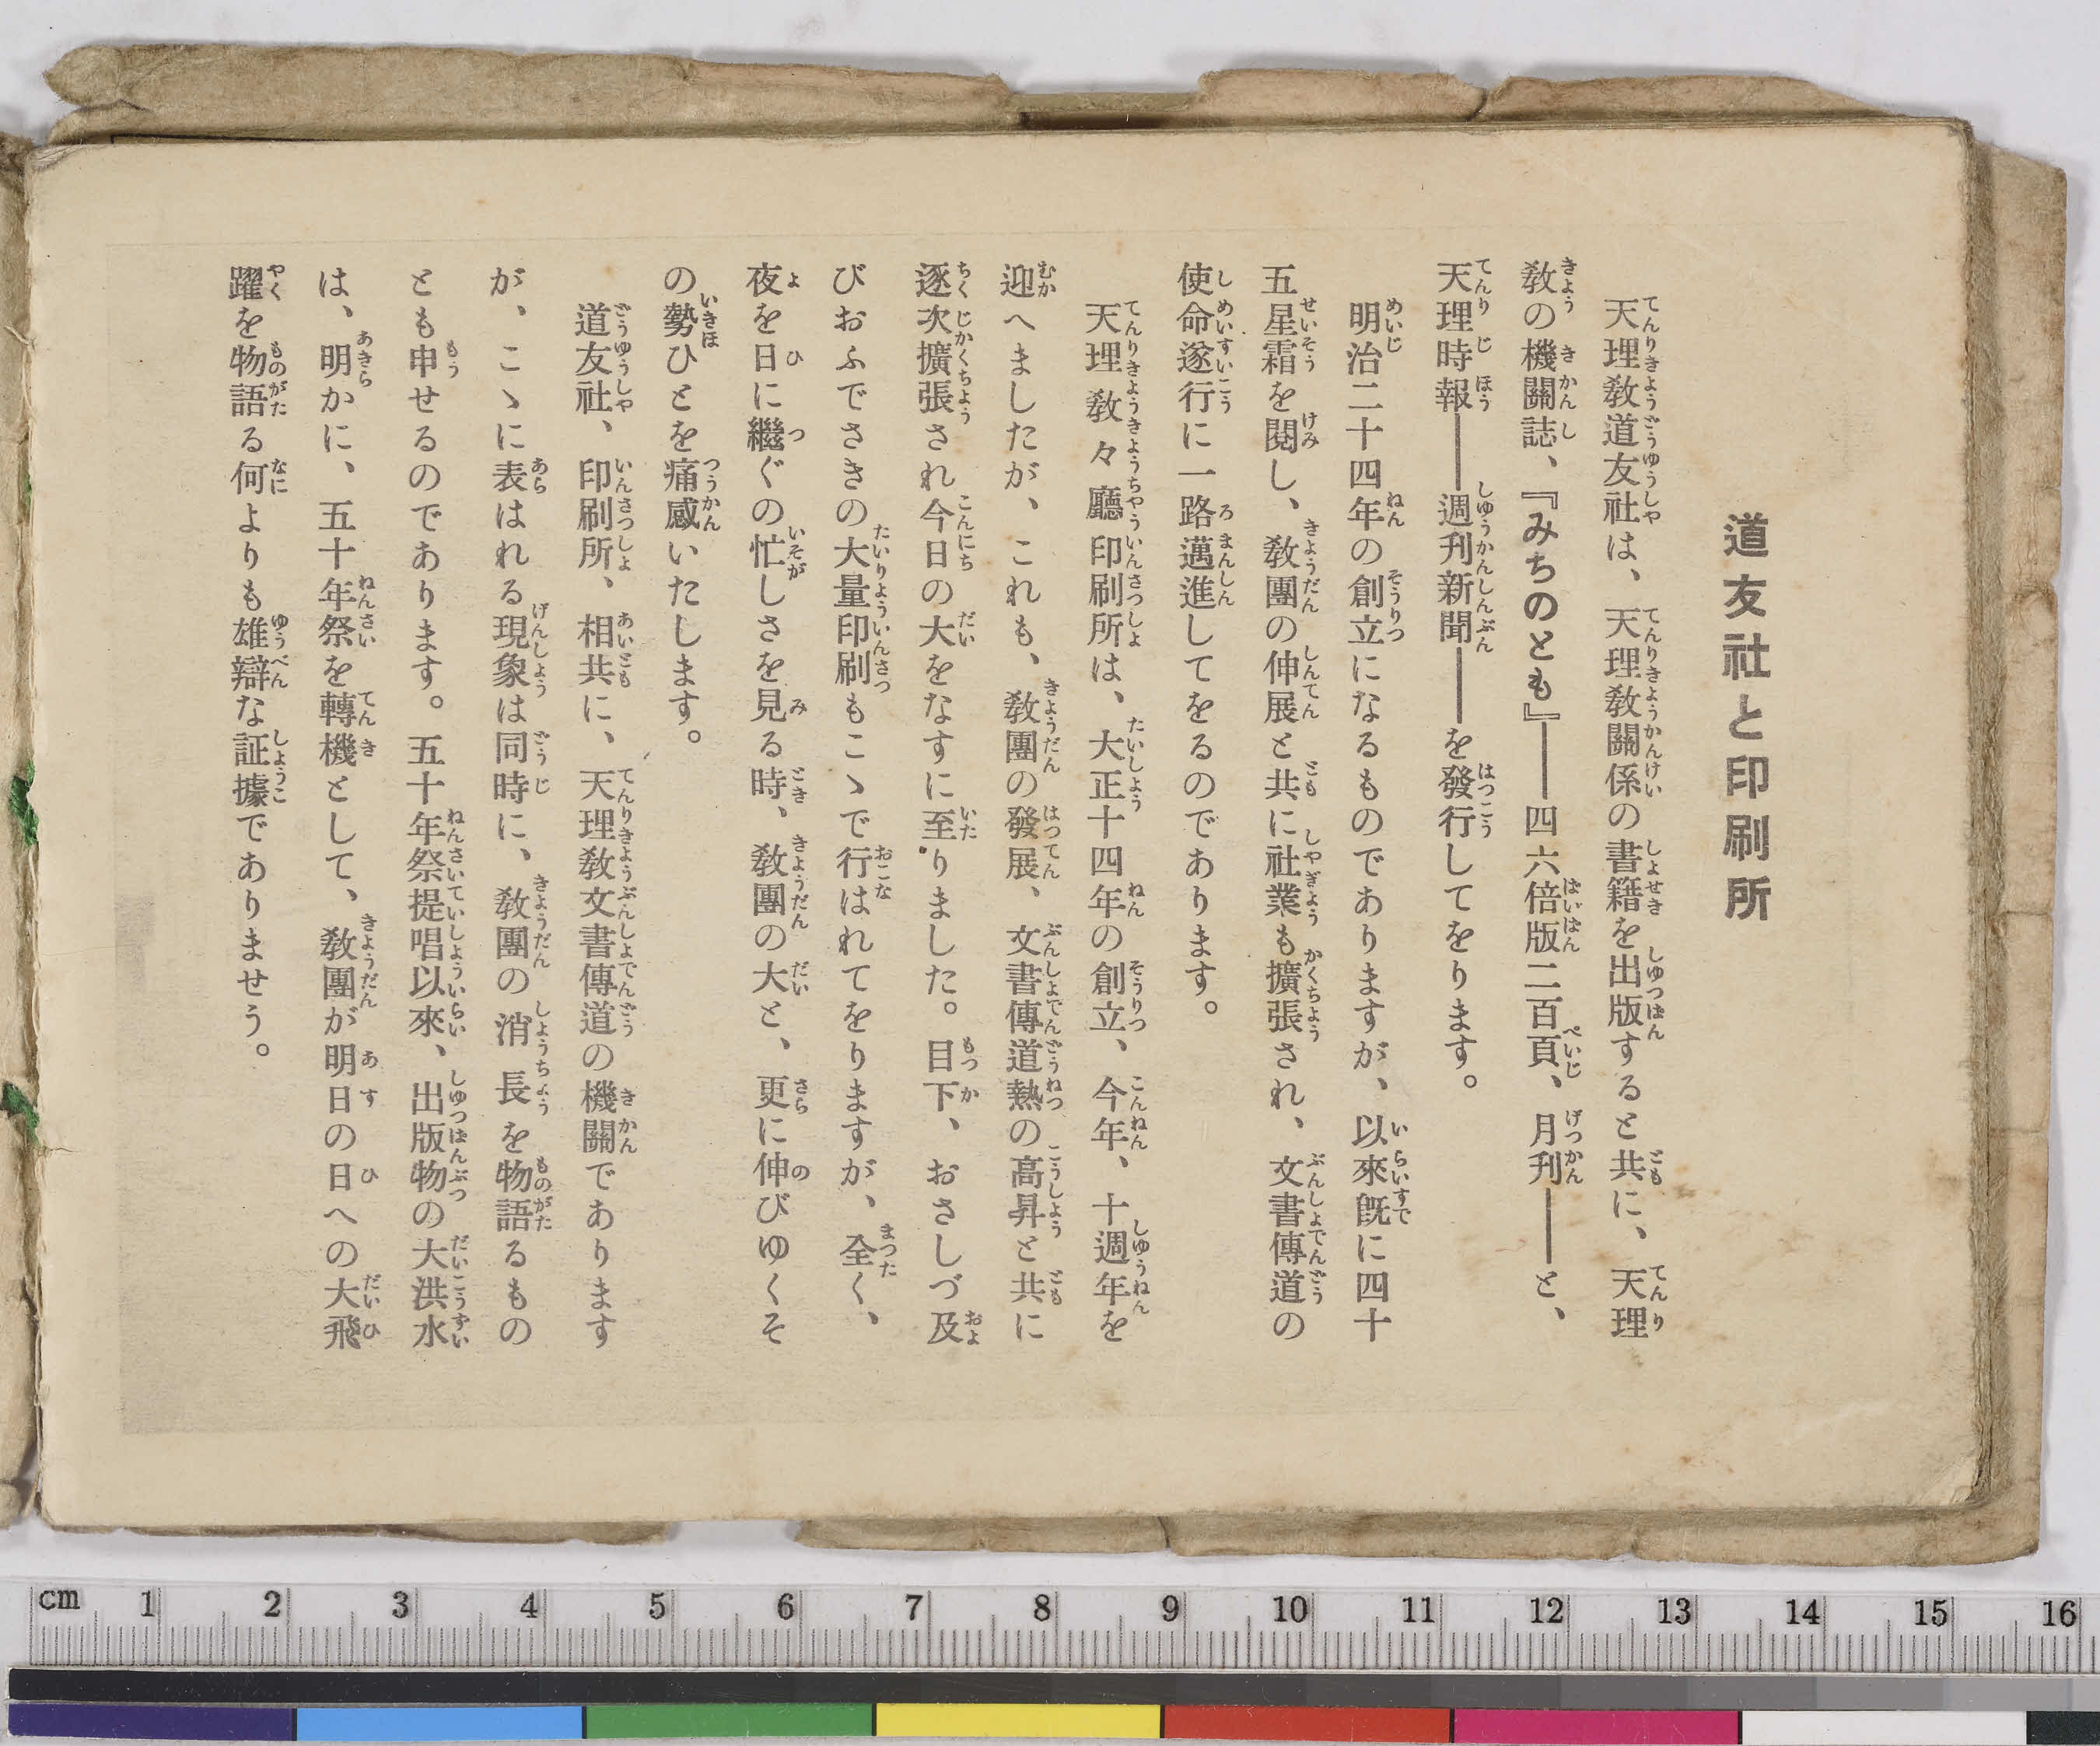 道友社と印刷所
天理教道友社は、天理教關係の書籍を出版すると共に、天理
教の機關誌、『みちのとも』――四六倍版二百頁、月刊――と、
天理時報――週刊新聞――を發行してをります。
明治二十四年の創立になるものでありますが、以來既に四十
五星霜を閲し、教團の伸展と共に社業も擴張され、文書傳道の
使命遂行に一路邁進してをるのであります。
天理教々廳印刷所は、大正十四年の創立、今年、十週年を
迎へましたが、これも、教團の發展、文書傳道熱の高昇と共に
逐次擴張され今日の大をなすに至りました。目下、おさしづ及
びおふでさきの大量印刷もこゝで行はれてをりますが、全く、
夜を日に繼ぐの忙しさを見る時、教團の大と、更に伸びゆくそ
の勢ひとを痛感いたします。
道友社、印刷所、相共に、天理教文書傳道の機關であります
が、こゝに表はれる現象は同時に、教團の消長を物語るもの
とも申せるのであります。五十年祭提唱以來、出版物の大洪水
は、明かに、五十年祭を轉機として、教團が明日の日への大飛
躍を物語る何よりも雄辯な証據でありませう。
cm 1 2 3 4 5 6 7 8 9 10 11 12 13 14 15 16